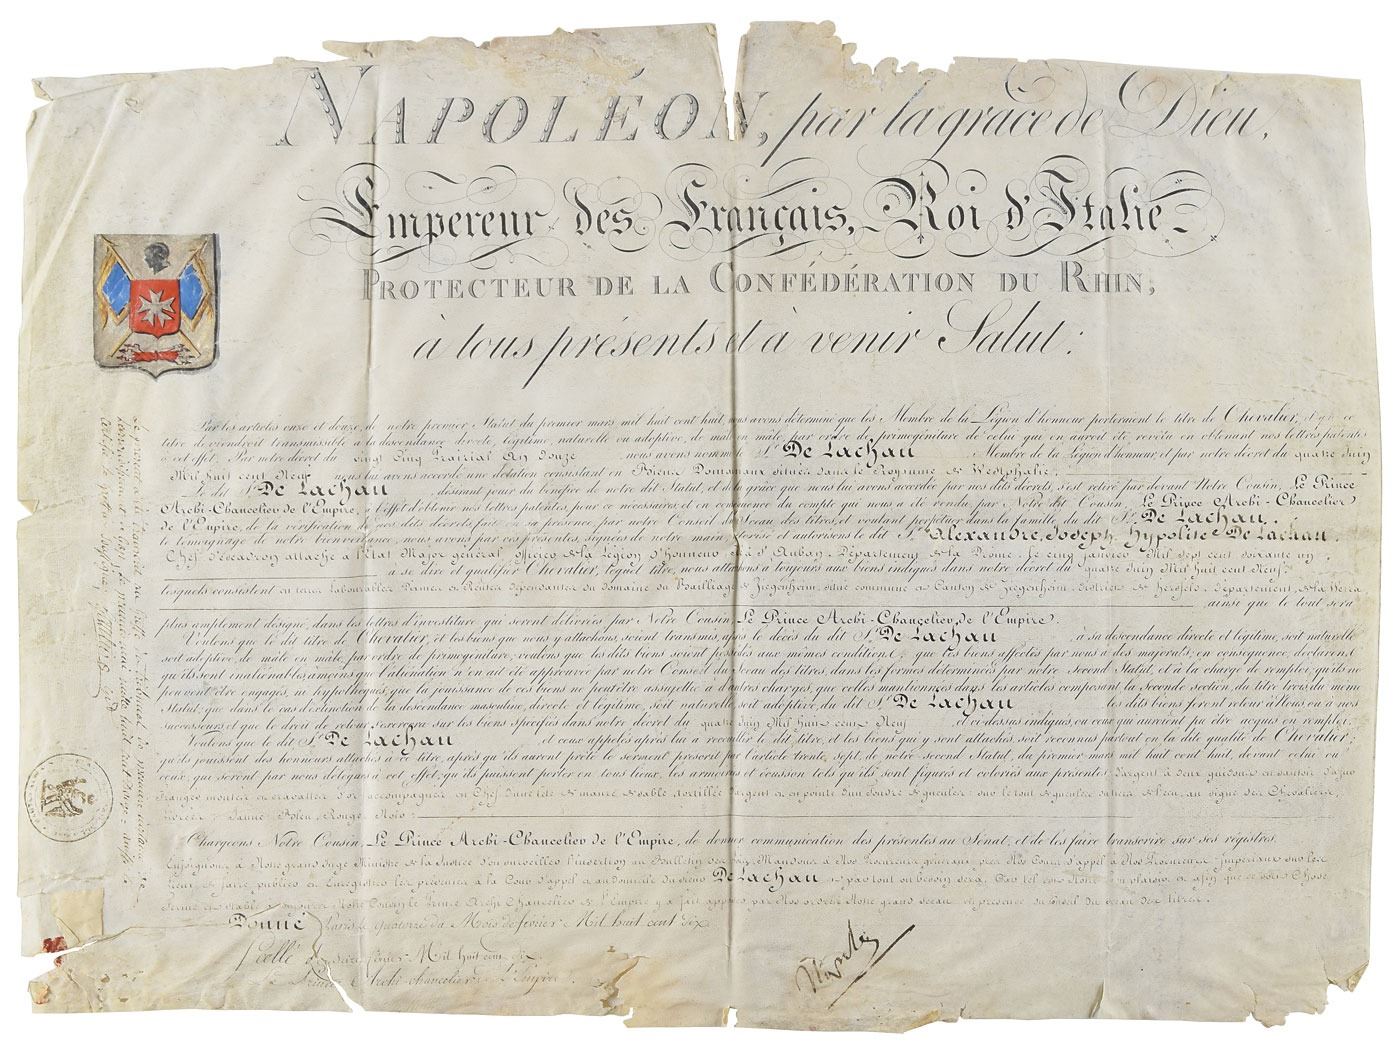 NAPOLÉON, par la grâce de Dieu,
Empereur des Français, Roi d'Italie
PROTECTEUR DE LA CONFÉDÉRATION DU RHIN,
à tous présents et à venir Salut:
Par les articles onze et douze, de notre premier Statut du premier mars mil huit cent huit, nous avons déterminé que les Membre de la Légion d'honneur porteraient le titre de Chevalier, et que ce
titre deviendroit transmissible à la descendance directe, légitime, naturelle ou adoptive, de mâle en mâle, par ordre de primogéniture de celui qui en auroit été revêtu en obtenant nos lettres patentes
à cet effet. Par notre décret du vingt cinq Prairial An Douze nous avons nommé le Sr. De Lachau Membre de la Légion d'honneur, et par notre décret du quatre Juin
Mil huit cent Neuf nous lui avons accordé une dotation consistant en Biens Domaniaux situés dans le Royaume de Westphalie;
Le dit Sr. De Lachau désirant jouir du bénéfice de notre dit Statut, et de la grâce que nous lui avons accordée par nos dits décrets, s'est retiré par devant Notre Cousin, Le Prince
Archi-Chancelier de l'Empire, à l'effet d'obtenir nos lettres patentes pour ce nécessaires et en conséquence du compte qui nous a été rendu par Notre dit Cousin, Le Prince Archi-Chancelier
de l'Empire, de la vérification de nos dits décrets fait en sa présence par notre Conseil du Sceau des titres, et voulant perpétuer dans la famille du dit Sr. De Lachau,
le témoignage de notre bienveillance, nous avons par ces présentes, signées de notre main, autorisé et autorisons le dit Sr. Alexandre, Joseph, Hypolite De Lachau,
Chef d'escadron attaché à l'Etat Major général Officier de la Légion d'Honneur, Né à St. Auban, Département de la Drôme, le cinq janvier Mil sept cent soixante un
à se dire et qualifier Chevalier, lequel titre, nous attachons à toujours aux biens indiqués dans notre décret du quatre Juin Mil huit cent Neuf
lesquels consistent en terres labourables dépendantes du Domaine du Bailliage de Ziegenheim, située commune et Canton de Ziegenheim, district de Hersfeld, département de la Werra
ainsi que le tout sera
plus amplement désigné, dans les lettres d'investiture qui seront délivrées par Notre Cousin, Le Prince Archi-Chancelier de l'Empire.
Voulons que le dit titre de Chevalier, et les biens que nous y attachons, soient transmis, après le décès du dit Sr. De Lachau à sa descendance directe et légitime, soit naturelle
soit adoptive, de mâle en mâle, par ordre de primogéniture, voulons que les dits biens soient possédés aux mêmes conditions, que les biens affectés par nous à des majorats, en conséquence, déclarons
qu'ils sont inaliénables, à moins que l'aliénation n'en ait été approuvée par notre Conseil du Sceau des titres, dans les formes déterminées par notre second Statut, et à la charge de remploi, qu'ils ne
peuvent être engagés, ni hypothéqués, que la jouissance de ces biens ne peut être assujettie à d'autres charges, que celles mentionnées dans les articles composant la Seconde section du titre trois du même
Statut; que dans le cas d'extinction de la descendance masculine, directe et légitime, soit naturelle soit adoptive, du dit Sr. De Lachau les dits biens feront retour à Nous ou à nos
successeurs et que le droit de retour s'exercera sur les biens spécifiés dans notre décret du quatre Juin Mil huit cent Neuf et ci-dessus indiqués, ou ceux qui auroient pu être acquis en remploi.
Voulons que le dit Sr. De Lachau et ceux appelés après lui à recueillir le dit titre, et les biens qui y sont attachés, soit reconnus partout en la dite qualité de Chevalier;
qu'ils jouissent des honneurs attachés à ce titre, après qu'ils auront prêté le serment prescrit par l'article trente, sept, de notre second Statut, du premier mars mil huit cent huit, devant celui ou
ceux, qui seront par nous délégués à cet effet, qu'ils puissent porter en tous lieux, les armoiries et écusson tels qu'ils sont figurés et coloriés aux présentes D'argent à deux guidons en sautoir d'azur
franges montés et cravattés d'or accompagnés en Chef d'une tête de maure de sable tortillée d'argent et en pointe d'un foudre de gueules; sur le tout de gueules au signe des Chevaliers
Chargeons Notre Cousin, Le Prince Archi-Chancelier de l'Empire, de donner communication des présentes au Sénat, et de les faire transcrire sur ses régistres.
Enjoignons à Notre grand Juge Ministre de la Justice d'en surveiller l'insertion au Bulletin des Loix; Mandons à Nos Procureurs généraux près Nos Cours d'appel et à Nos Procureurs Impériaux sur les
lieux, de faire publier et Enregistrer les présentes à la Cour d'appel et au domicile du sieur De Lachau et partout où besoin sera, Car tel est Notre bon plaisir et afin que ce soit Chose
ferme et stable à toujours Notre Cousin le Prince Archi Chancelier de l'Empire y a fait apposer par Nos ordres Notre grand Sceau, en présence du Conseil du Sceau des titres.
Donné à Paris le quatorze du Mois de février Mil huit cent dix
Scellé le seize février Mil huit cent dix
Le Prince Archi-chancelier de l'Empire